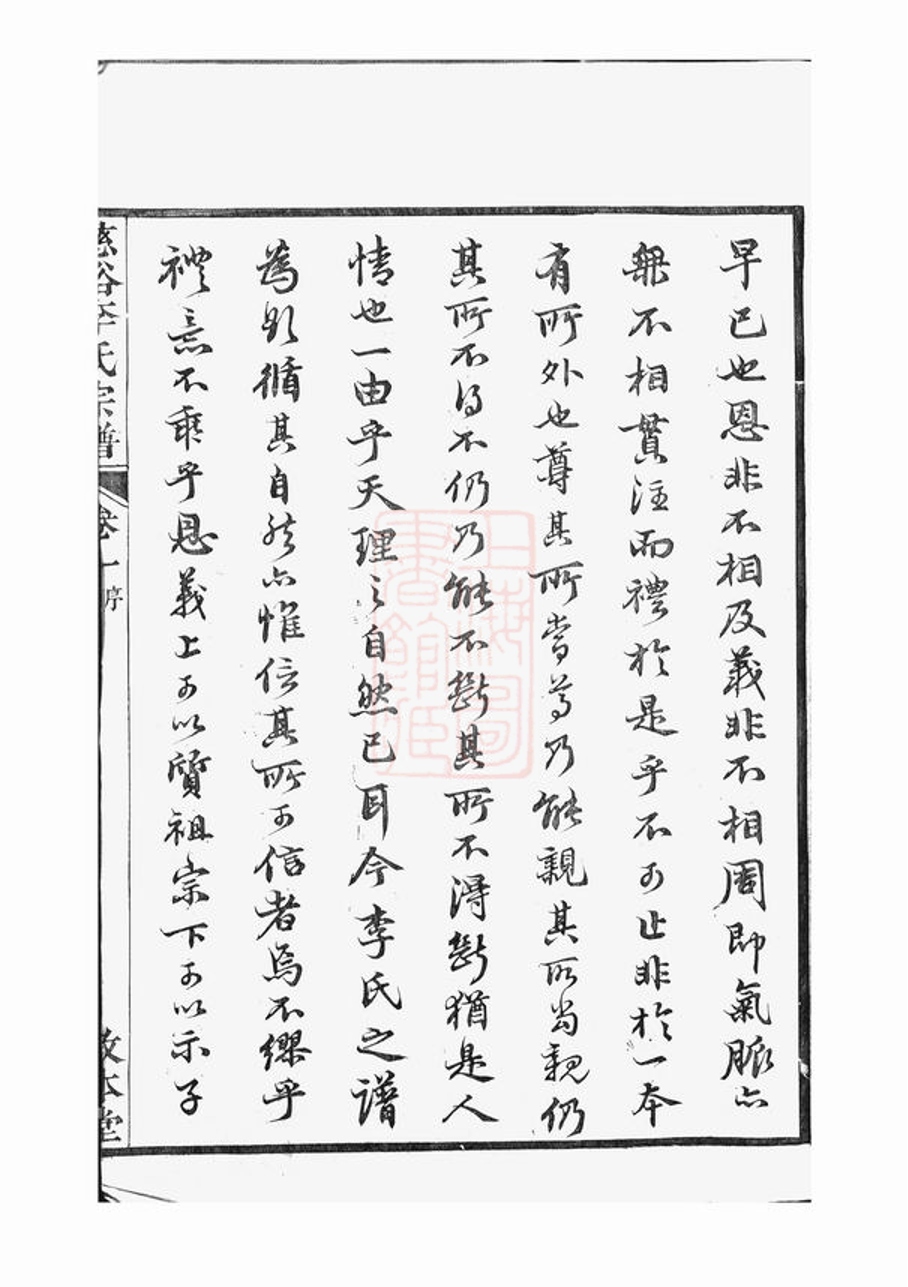 早已也恩非不相及義非不相周即氣脈亦
無不相貫注而禮於是乎不可止非於一本
有所外也尊其所當尊乃能親其所當親仍
其所不得不仍乃能不斷其所不得斷猶是人
情也一由乎天理之自然已耳今李氏之譜
為則循其自然亦惟信其所可信者焉不繆乎
禮意不乖乎恩義上可以質祖宗下可以示子
慈谷李氏宗譜 卷一 序 敦本堂
上海圖書館藏